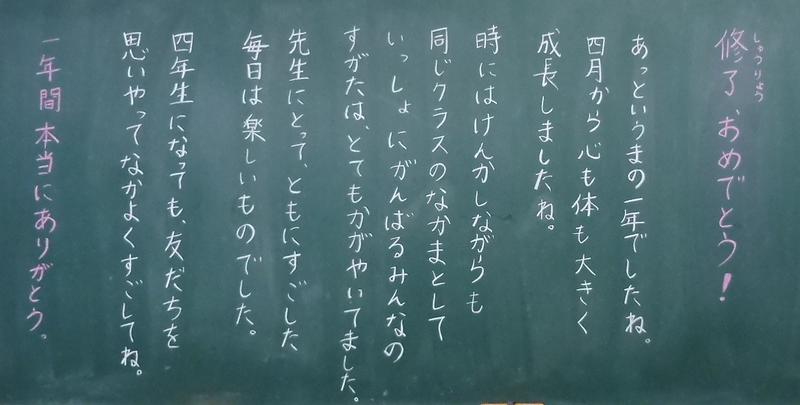 しゅうりょう
修了、おめでとう!
あっというまの一年でしたね。
四月から心も体も大きく
成長しましたね。
時にはけんかしながらも
同じクラスのなかまとして
いっしょにがんばるみんなの
すがたは、とてもかがやいてました。
先生にとって、ともにすごした
毎日は楽しいものでした。
四年生になっても、友だちを
思いやってなかよくすごしてね。
一年間本当にありがとう。